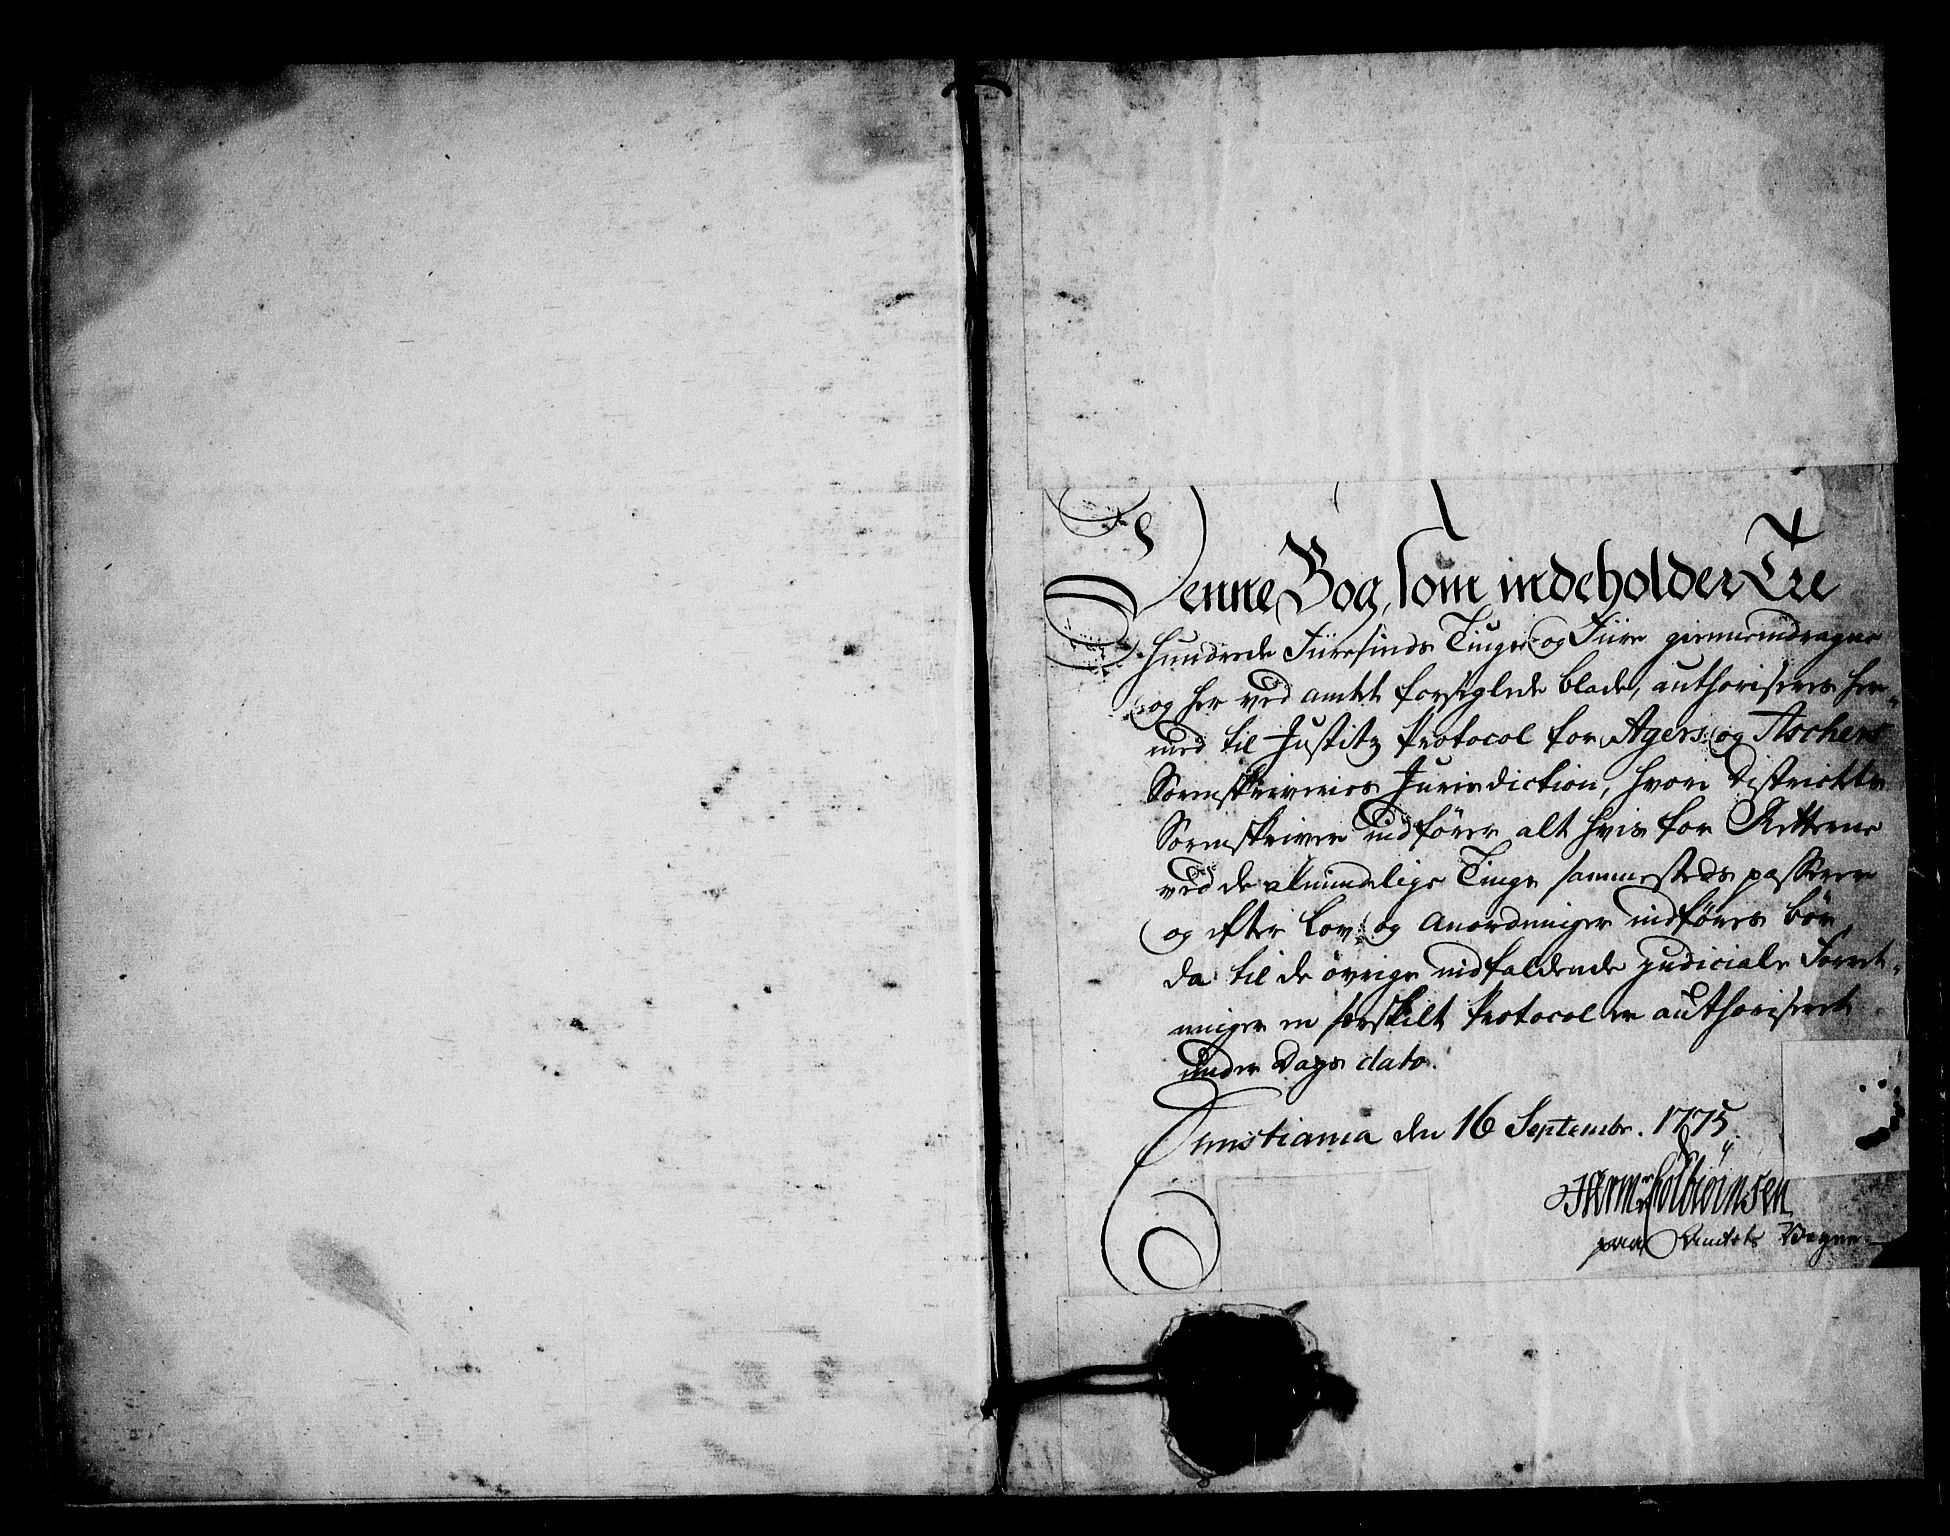 Denne Bog, som indeholder Tre
Hundrede Fiiresinds Tiuge og Fiire giennemdragne
og her ved amtet forseglede blade, authoriseres her-
med til Justitz Protocol for Agers og Aschers
Sorenskriveries Jurisdiction, hvori Districktets
Sorenskriver indfører alt hvis for Retterne
ved de almindelige Tinge sammesteds passerer
og efter Lov og Anordninger indføres bør,
da til de øvrige indfaldende judiciale Forret-
ninger en særskilt Protocol er authoriseret
under Dags dato.
Christiania den 16 Septembr. 1775.
paa Amtets Vegne.